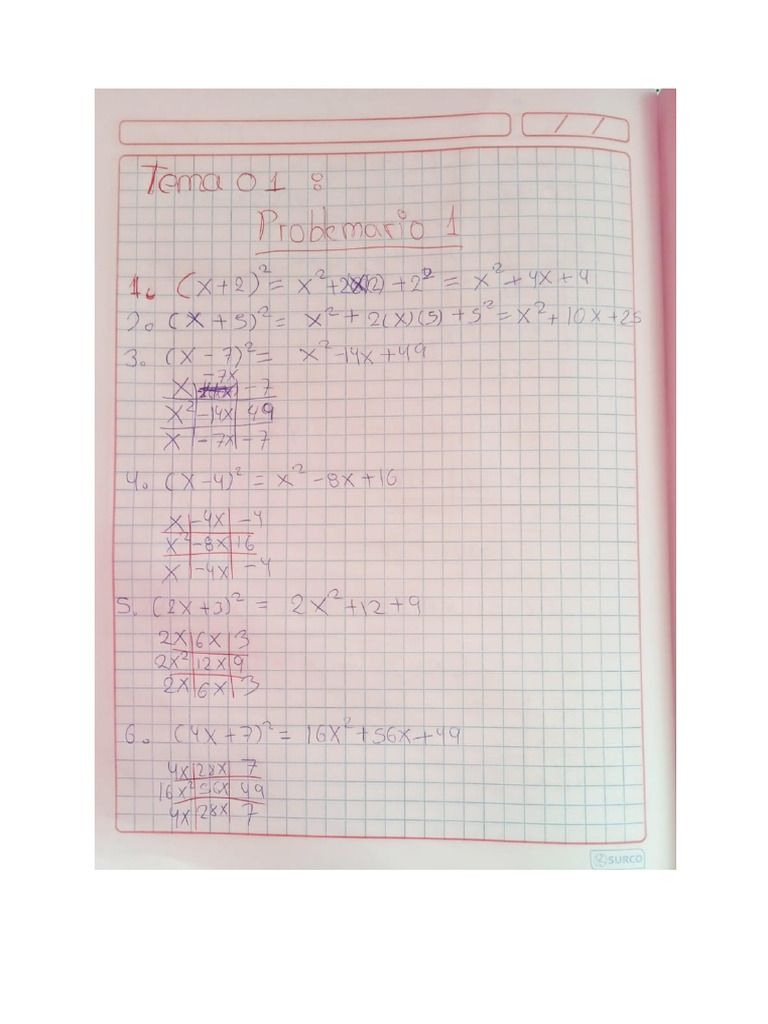 Tema 01 :
Problemario 1
1. (x+2)² = x²+2(x)(2)+2² = x²+4x+4
2. (x+5)² = x²+2(x)(5)+5² = x²+10x+25
3. (x-7)² = x²-14x+49
-7x
x -7
x² -14x 49
x -7x -7
4. (x-4)² = x²-8x+16
x -4x -4
x² -8x 16
x -4x -4
5. (2x+3)² = 2x²+12+9
2x 6x 3
2x² 12x 9
2x 6x 3
6. (4x+7)² = 16x²+56x+49
4x 28x 7
16x² 56x 49
4x 28x 7
SURCO